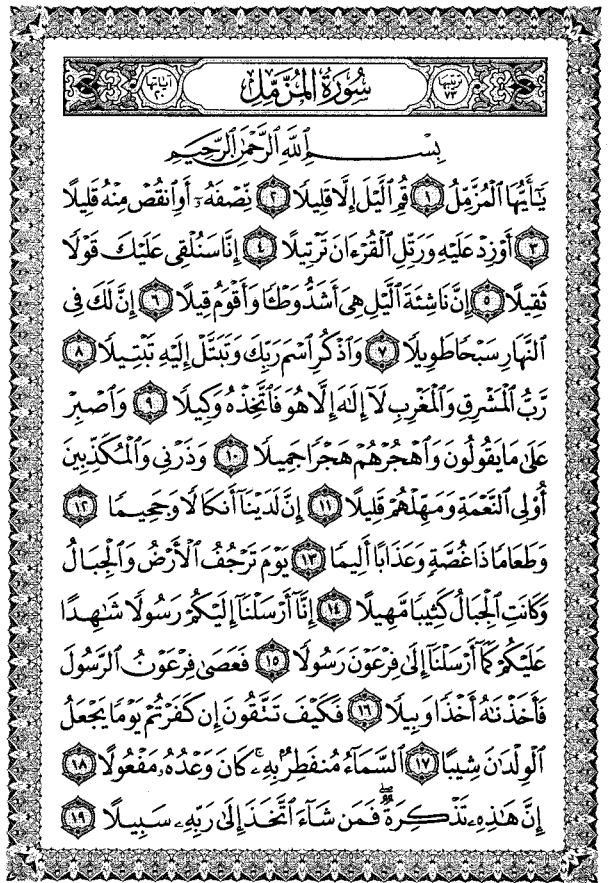 ترتيبها ٧٣ سُورَةُ المُزَّمِّل آياتها ٢٠
بِسْمِ ٱللَّهِ ٱلرَّحْمَٰنِ ٱلرَّحِيمِ
يَٰٓأَيُّهَا ٱلْمُزَّمِّلُ ١ قُمِ ٱلَّيْلَ إِلَّا قَلِيلًا ٢ نِّصْفَهُۥٓ أَوِ ٱنقُصْ مِنْهُ قَلِيلًا
٣ أَوْ زِدْ عَلَيْهِ وَرَتِّلِ ٱلْقُرْءَانَ تَرْتِيلًا ٤ إِنَّا سَنُلْقِى عَلَيْكَ قَوْلًا
ثَقِيلًا ٥ إِنَّ نَاشِئَةَ ٱلَّيْلِ هِىَ أَشَدُّ وَطْـًٔا وَأَقْوَمُ قِيلًا ٦ إِنَّ لَكَ فِى
ٱلنَّهَارِ سَبْحًا طَوِيلًا ٧ وَٱذْكُرِ ٱسْمَ رَبِّكَ وَتَبَتَّلْ إِلَيْهِ تَبْتِيلًا ٨
رَّبُّ ٱلْمَشْرِقِ وَٱلْمَغْرِبِ لَآ إِلَٰهَ إِلَّا هُوَ فَٱتَّخِذْهُ وَكِيلًا ٩ وَٱصْبِرْ
عَلَىٰ مَا يَقُولُونَ وَٱهْجُرْهُمْ هَجْرًا جَمِيلًا ١٠ وَذَرْنِى وَٱلْمُكَذِّبِينَ
أُو۟لِى ٱلنَّعْمَةِ وَمَهِّلْهُمْ قَلِيلًا ١١ إِنَّ لَدَيْنَآ أَنكَالًا وَجَحِيمًا ١٢
وَطَعَامًا ذَا غُصَّةٍ وَعَذَابًا أَلِيمًا ١٣ يَوْمَ تَرْجُفُ ٱلْأَرْضُ وَٱلْجِبَالُ
وَكَانَتِ ٱلْجِبَالُ كَثِيبًا مَّهِيلًا ١٤ إِنَّآ أَرْسَلْنَآ إِلَيْكُمْ رَسُولًا شَٰهِدًا
عَلَيْكُمْ كَمَآ أَرْسَلْنَآ إِلَىٰ فِرْعَوْنَ رَسُولًا ١٥ فَعَصَىٰ فِرْعَوْنُ ٱلرَّسُولَ
فَأَخَذْنَٰهُ أَخْذًا وَبِيلًا ١٦ فَكَيْفَ تَتَّقُونَ إِن كَفَرْتُمْ يَوْمًا يَجْعَلُ
ٱلْوِلْدَٰنَ شِيبًا ١٧ ٱلسَّمَآءُ مُنفَطِرٌۢ بِهِۦ ۚ كَانَ وَعْدُهُۥ مَفْعُولًا ١٨
إِنَّ هَٰذِهِۦ تَذْكِرَةٌ ۖ فَمَن شَآءَ ٱتَّخَذَ إِلَىٰ رَبِّهِۦ سَبِيلًا ١٩